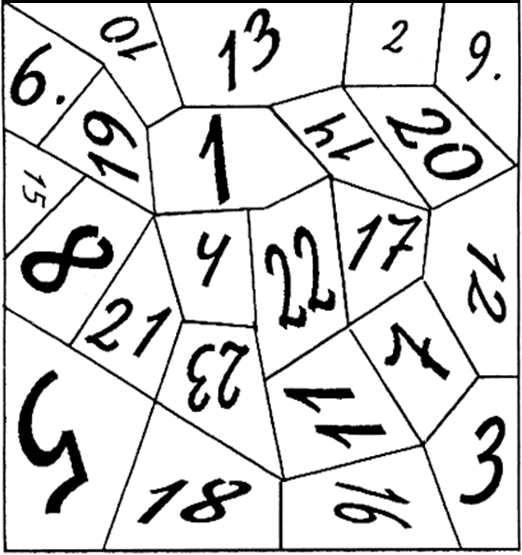 10
13
2
9.
6.
19
1
14
20
15
8
4
22
17
12
21
23
7
11
5
18
16
3